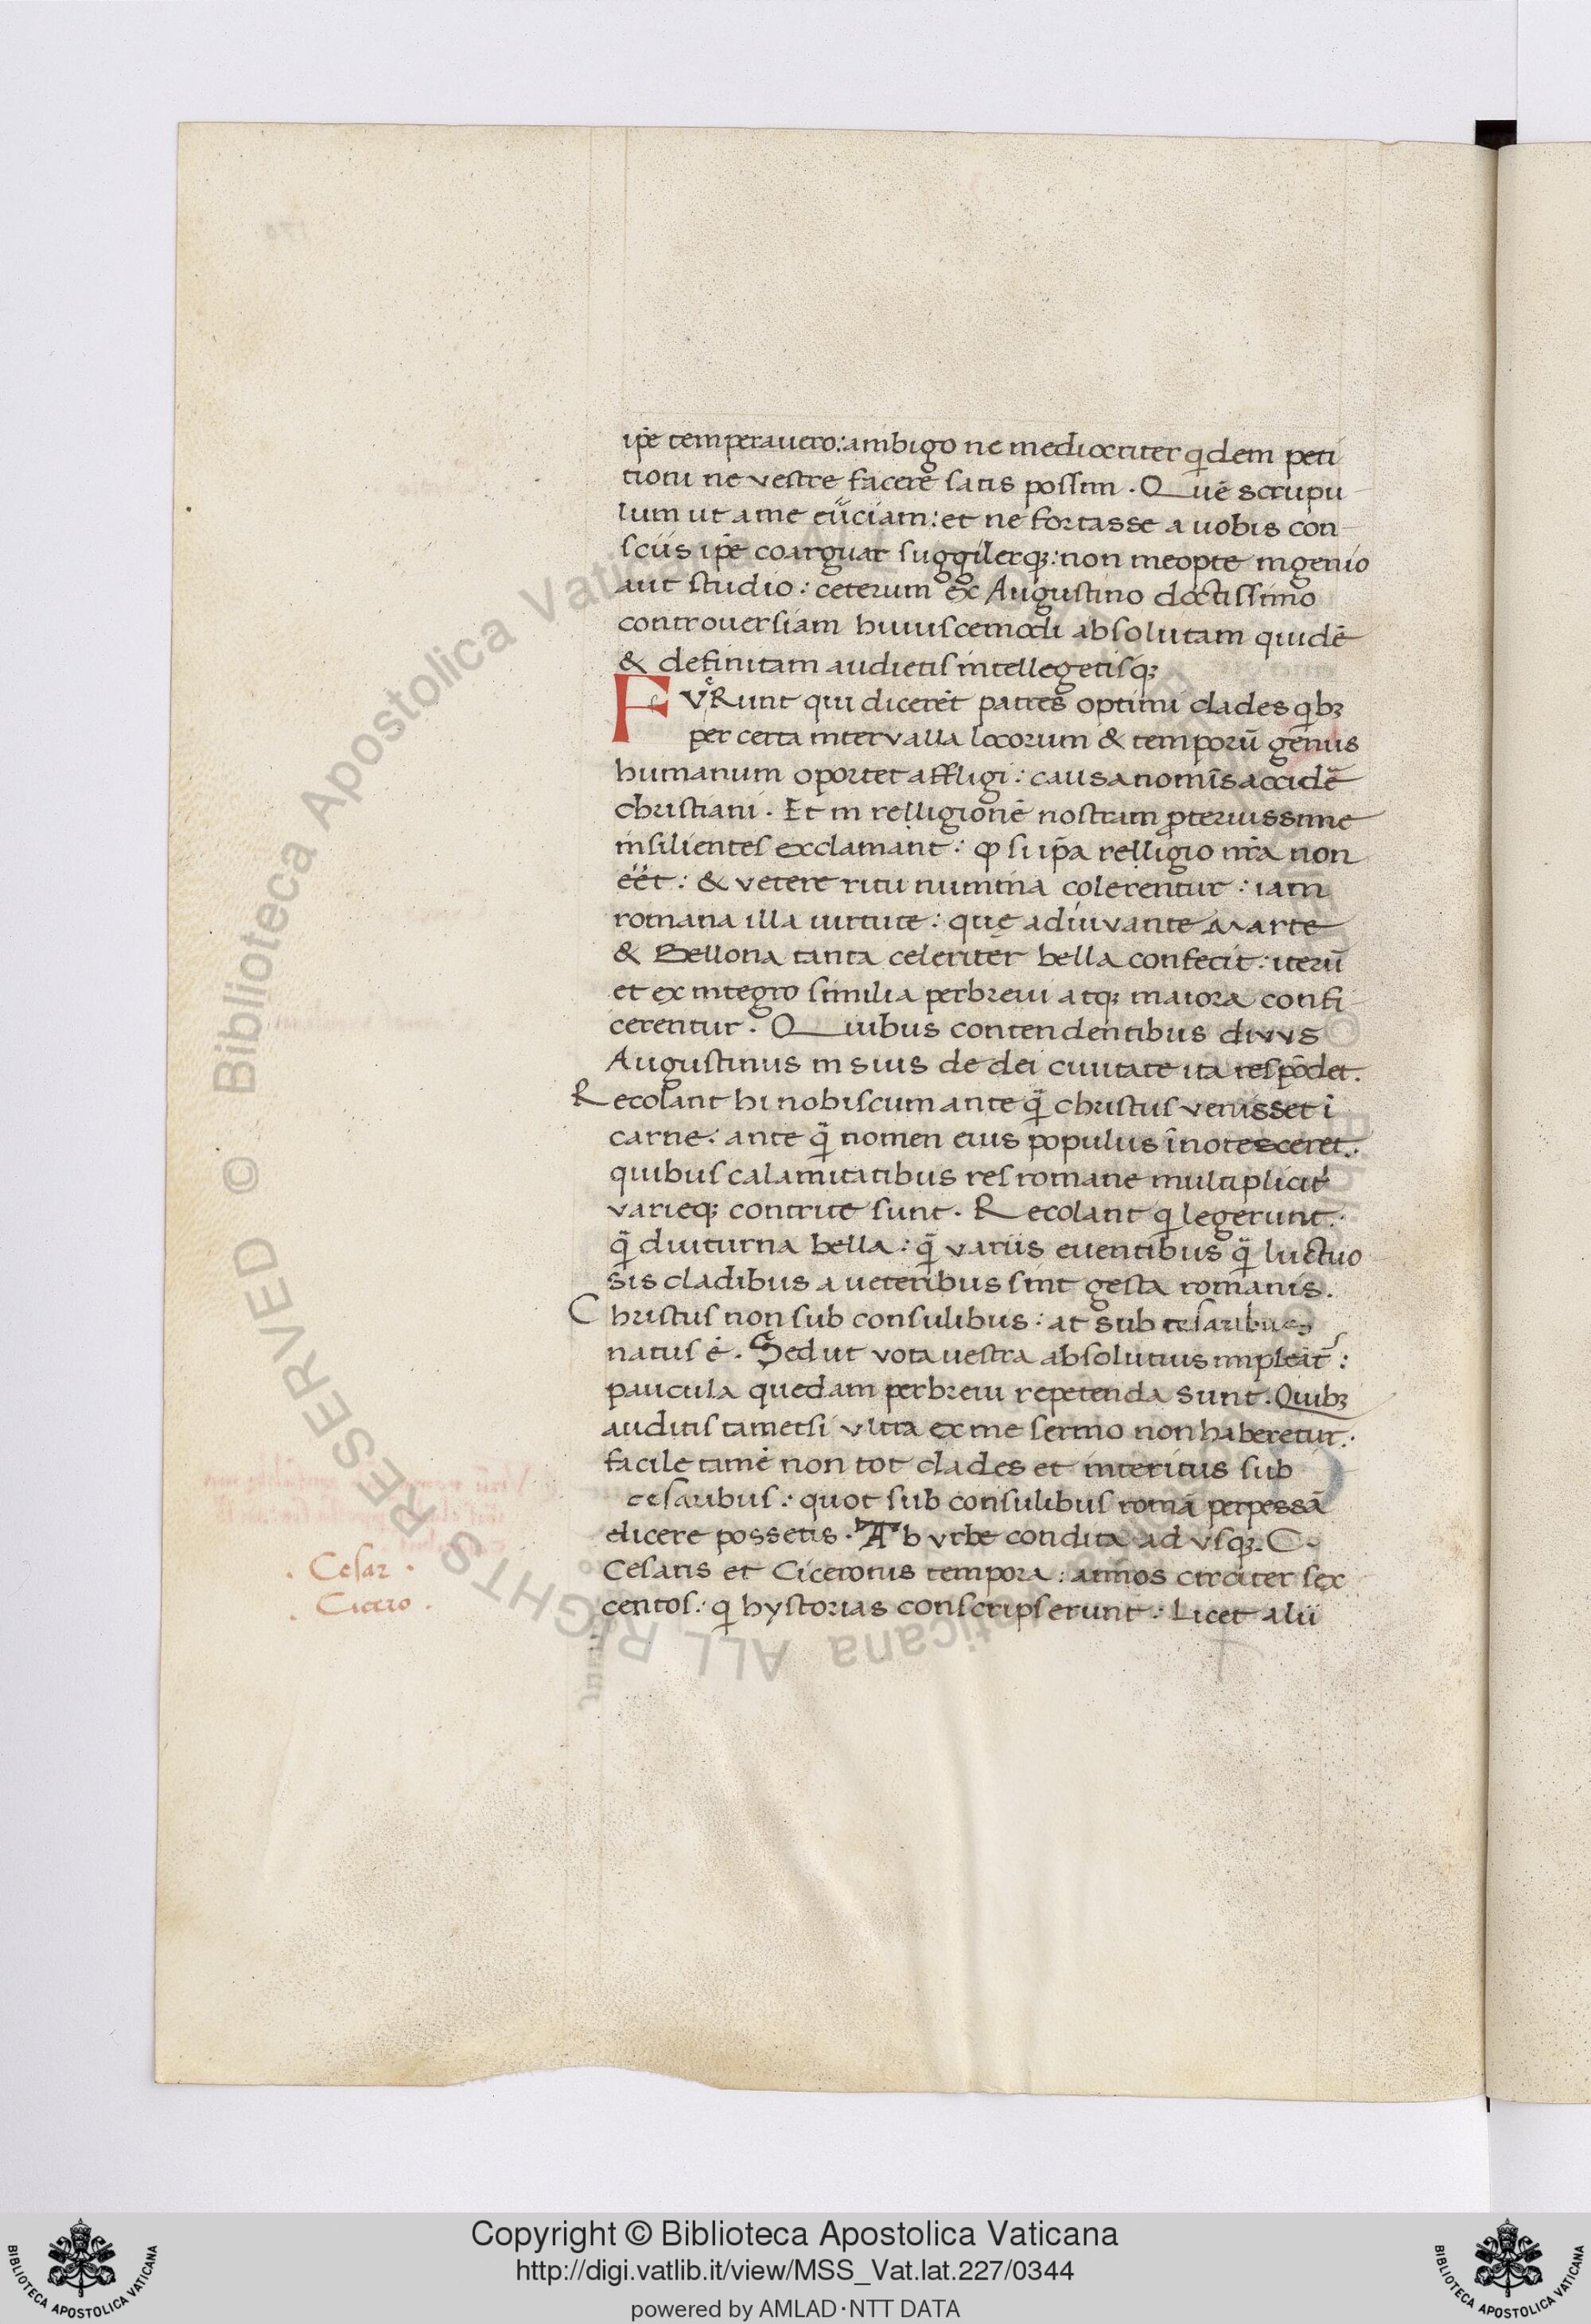 ip̄e temperauero: ambigo ne mediocriter qdem peti
tioni ne vestre facere satis possim . Quē scrupu
lum ut a me eūciam: et ne fortasse a uobis con-
sciis ip̄e coarguar suggilerq;: non meopte ingenio
aut studio: ceterum ex Augustino doctissimo
controuersiam huiuscemodi absolutam quidē
& definitam audietis intellegetisq;
FVeRunt qui dicerēt patres optimi clades qb;
per certa intervalla locorum & temporū genus
humanum oportet affligi: causa nomīs accidē
christiani . Et in relligionē nostram p̱teruissime
insilientes exclamant: ꝙ si ip̄a relligio nr̄a non
eēt: & vetere ritu numina colerentur: iam
romana illa uirtute: quę adiuvante Marte
& Bellona tanta celeriter bella confecit: iterū
et ex integro similia perbreui atq; maiora confi-
cerentur . Quibus contendentibus divvs
Augustinus in suis de dei ciuitate ita respōdet.
Recolant hi nobiscum ante q̄ christus venisset ī
carne: ante q̄ nomen eius populus īnotesceret.
quibus calamitatibus res romane multiplicit̄
varieq; contrite sunt . Recolant q legerunt:
q̄ diuturna bella: q̄ variis euentibus q̄ luctuo
sis cladibus a ueteribus sint gesta romanis.
Christus non sub consulibus: at sub cesaribus
natus ē . Sed ut vota uestra absolutius impleāt:
paucula quedam perbreui repetenda sunt . Quib;
auditis tametsi vltra ex me sermo non haberetur:
facile tamē non tot clades et interitus sub
cesaribus: quot sub consulibus romā perpessā
elicere possetis . Ab vrbe condita ad vsq; C.
Cesaris et Ciceronis tempora: annos circiter sex
centos: q hystorias conscripserunt: Licet alii
. Cesar .
. Cicero .
Copyright © Biblioteca Apostolica Vaticana
http://digi.vatlib.it/view/MSS_Vat.lat.227/0344
powered by AMLAD·NTT DATA
BIBLIOTECA APOSTOLICA VATICANA
BIBLIOTECA APOSTOLICA VATICANA